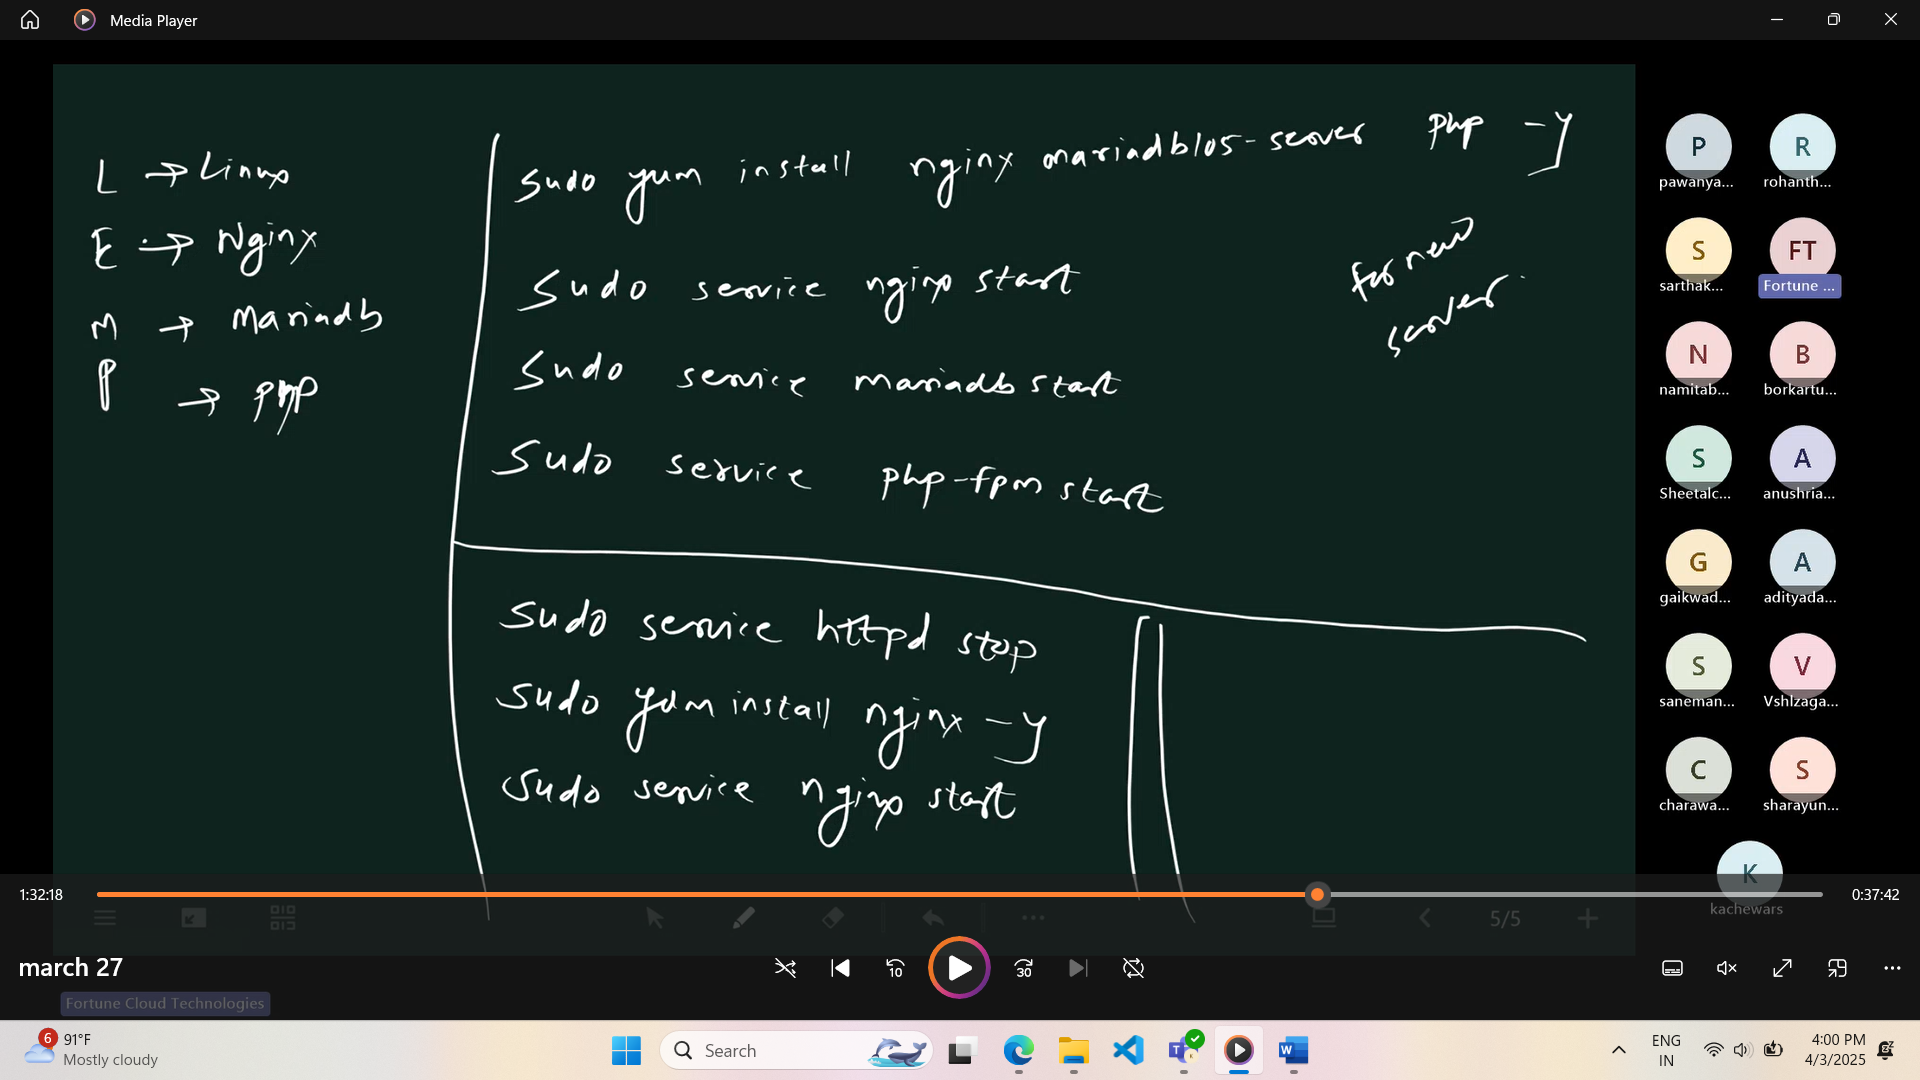 Media Player
L → Linux
E → Nginx
M → Mariadb
P → PHP
sudo yum install nginx mariadb105-server php -y
for new
server
sudo service nginx start
sudo service mariadb start
sudo service php-fpm start
sudo service httpd stop
sudo yum install nginx -y
sudo service nginx start
P R
pawanya... rohanth...
S FT
sarthak... Fortune ...
N B
namitab... borkartu...
S A
Sheetalc... anushria...
G A
gaikwad... adityada...
S V
saneman... Vshlzaga...
C S
charawa... sharayun...
K
kachewars
1:32:18 0:37:42
5/5
march 27
10 30
Fortune Cloud Technologies
6 91°F
Mostly cloudy
Search
ENG
IN
4:00 PM
4/3/2025